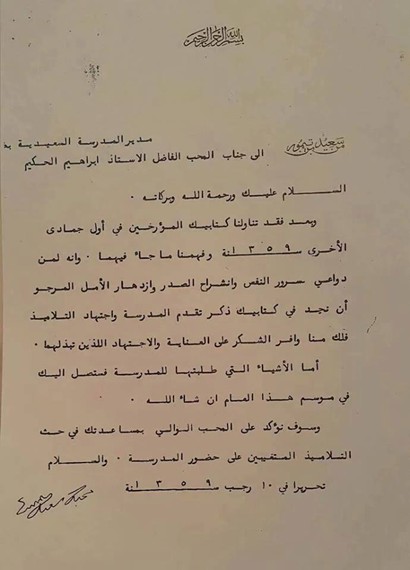 بسم الله الرحمن الرحيم
من سعيد بن تيمور
مدير المدرسة السعيدية
الى جناب المحب الفاضل الاستاذ ابراهيم الحكيم
السـلام عليك ورحمة الله وبركاته ٠
وبعد فقد تناولنا كتابيك المؤرخين في أول جمادى
الأخرى ســ١٣٥٩ــنة وفهمنا ما جاء فيهما ٠ وانه لمن
دواعي سرور النفس وانشراح الصدر وازدهار الأمل المرجو
أن نجد في كتابيك ذكر تقدم المدرسة واجتهاد التلاميذ
فلك منا وافر الشكر على العناية والاجتهاد اللذين تبذلهما ٠
أما الأشياء التي طلبتها للمدرسة فستصل اليك
في موسم هذا العام ان شاء الله ٠
وسوف نؤكد على المحب الوالي بمساعدتك في حث
التلاميذ المتغيبين على حضور المدرسة ٠ والسلام
تحريرا في ١٠ رجب ســ١٣٥٩ــنة